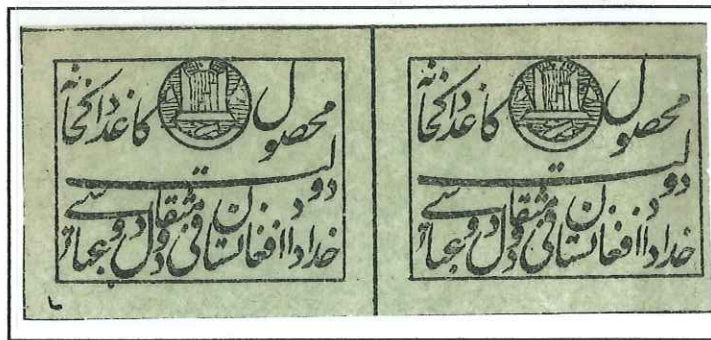 محصول کاغذ داکخانه
دولت
خداداد افغانستان فی دو مثقال دو عباسی
محصول کاغذ داکخانه
دولت
خداداد افغانستان فی دو مثقال دو عباسی